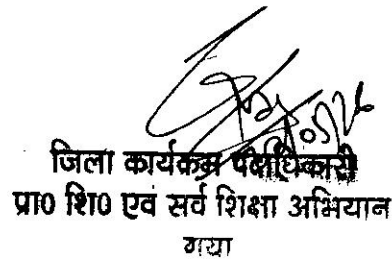 जिला कार्यक्रम पदाधिकारी
प्रा0 शि0 एवं सर्व शिक्षा अभियान
गया